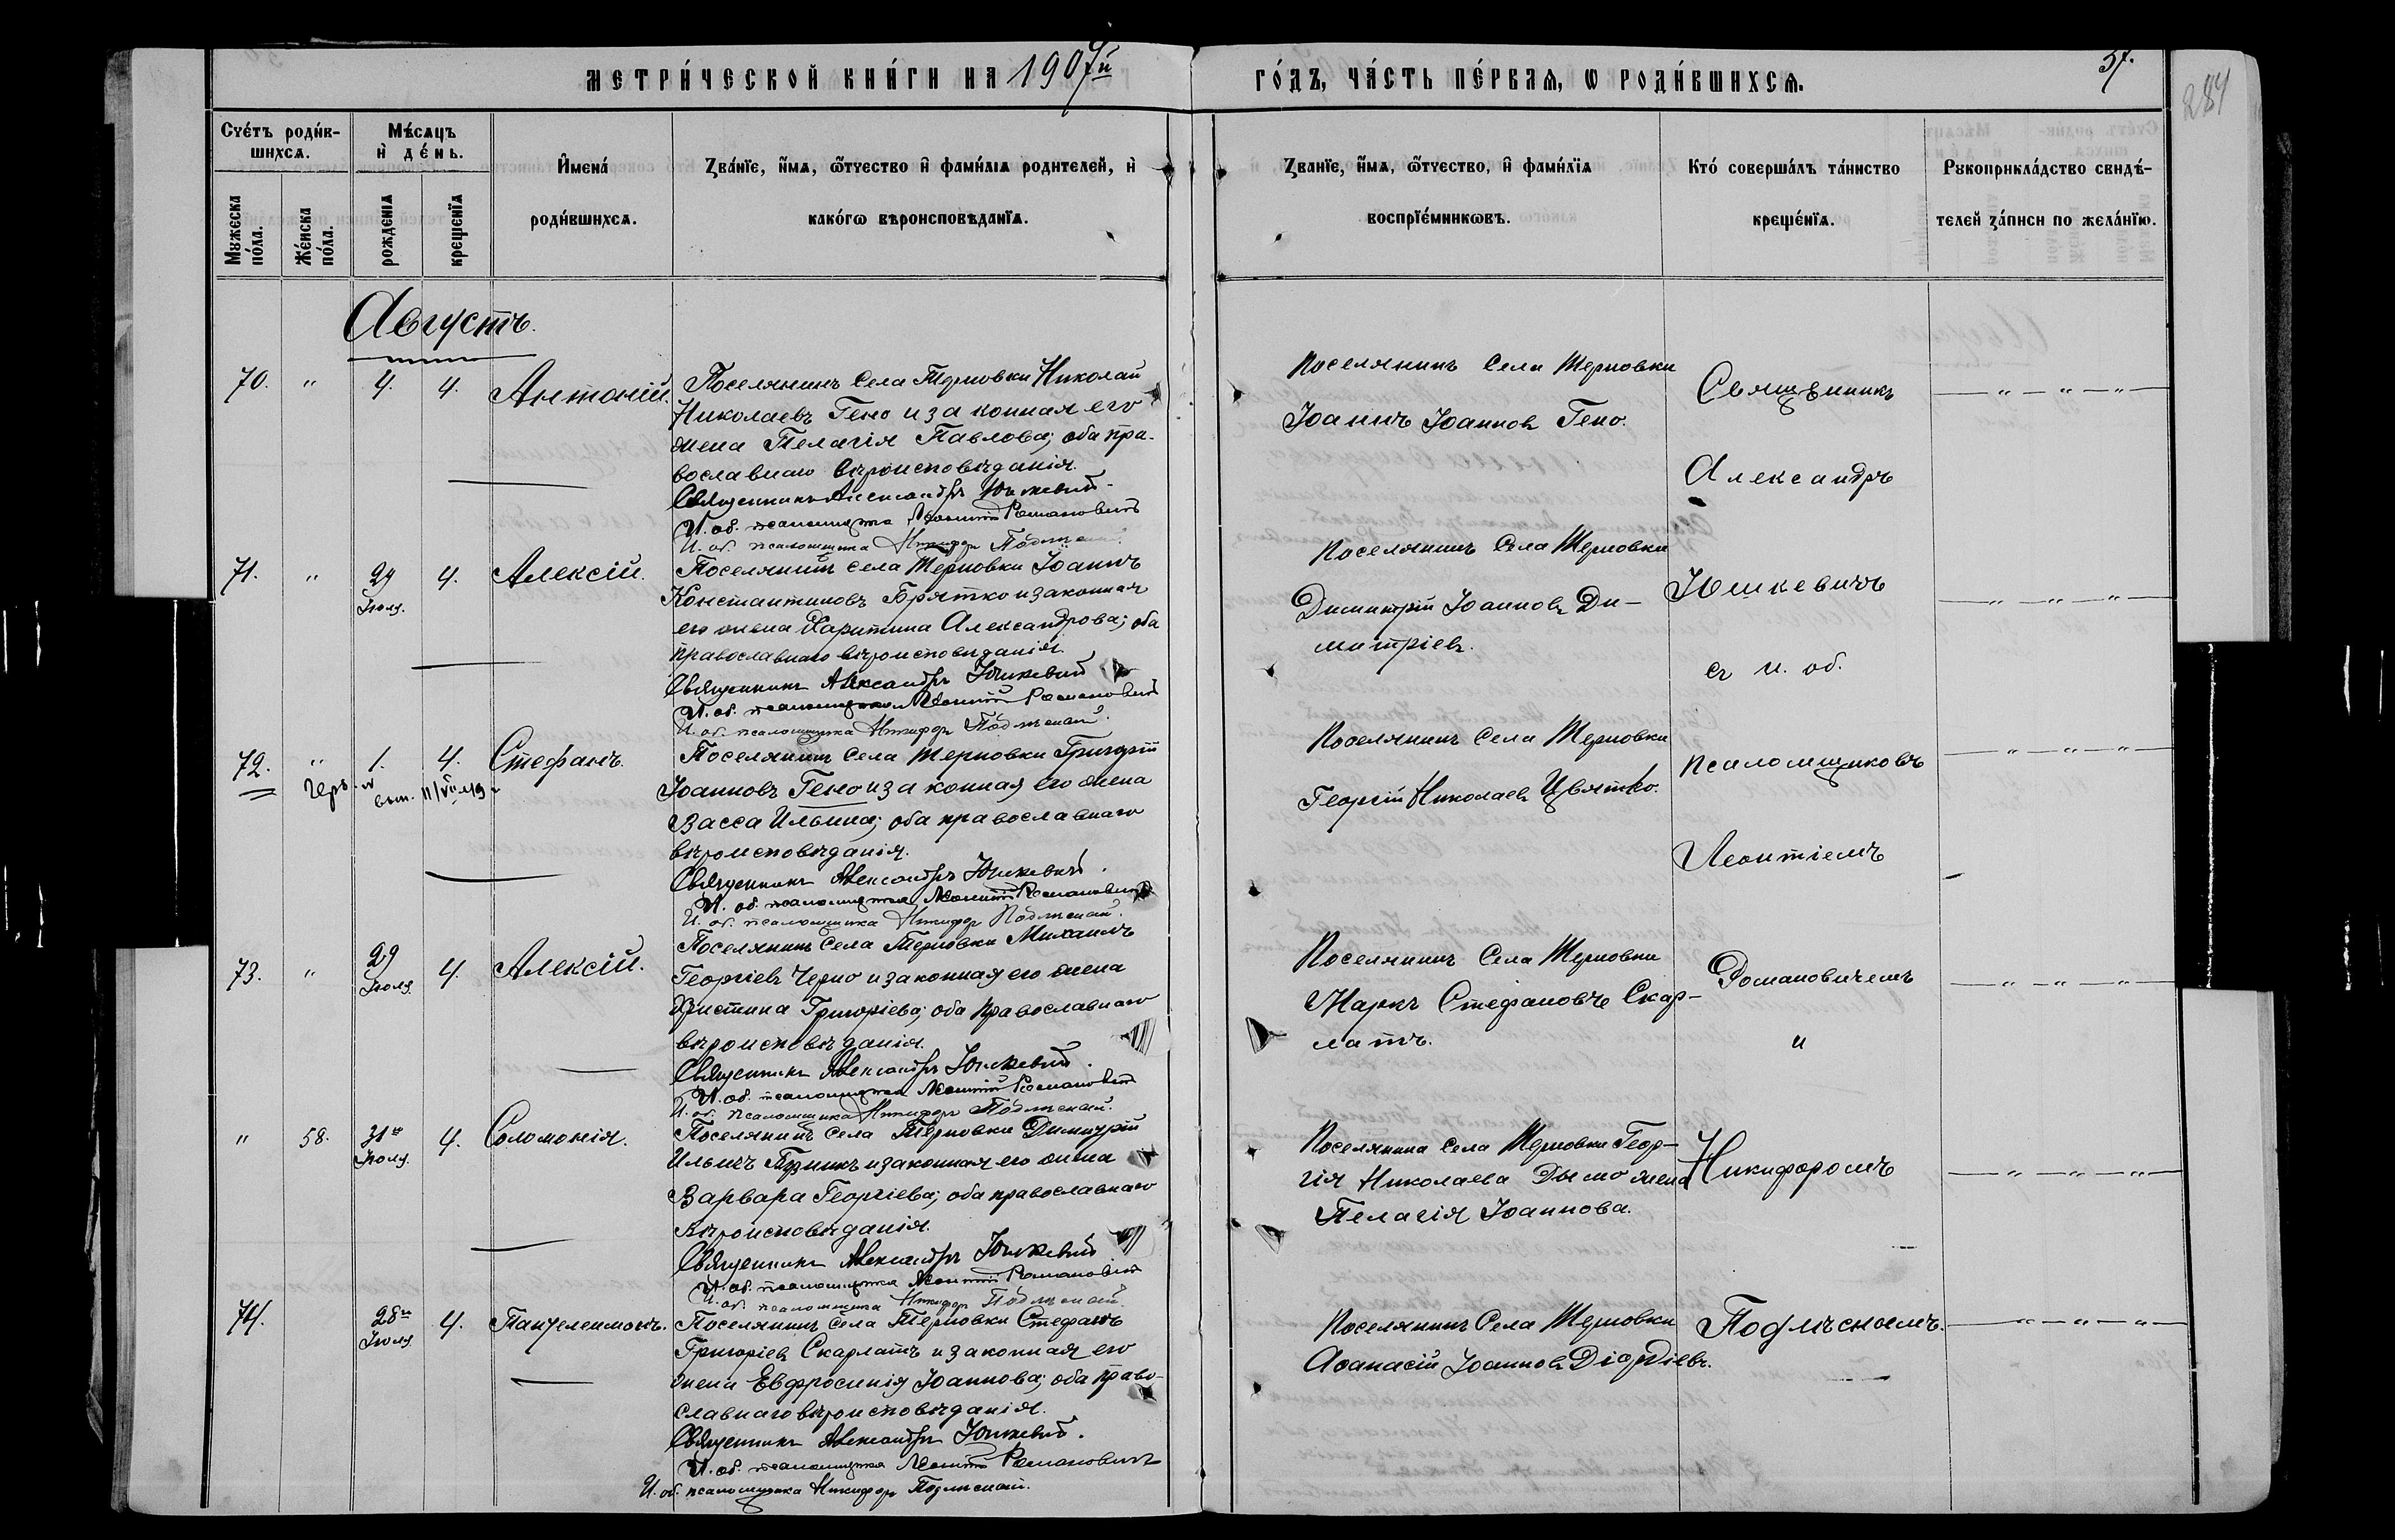 МЕТРИ́ЧЕСКОЙ КНИ́ГИ НА 1907й
ГО́ДЪ, ЧА́СТЬ ПЕ́РВАѦ, Ѡ РОДИ́ВШИХСѦ.
37.
284
Сче́тъ роди́в-
шихсѧ.
Мѣ́сѧцъ
и де́нь.
Мꙋжеска по́ла.
Же́нска по́ла.
рожденїѧ
крещенїѧ
Имена́
роди́вшихсѧ.
Зва́нїе, и́мѧ, ѻ́тчество и фами́лїѧ родителей, и
како́гѡ вѣроисповѣданїѧ.
Званїе, и́мѧ, ѻ́тчество, и фами́лїѧ
воспрїе́мникѡвъ.
Кто́ соверша́лъ та́инство
креще́нїѧ.
Рꙋкоприкла́дство свидѣ́-
телей за́писи по жела́нїю.
Августъ.
70. " 4. 4. Антоній.
Поселянинъ села Терновки Николай
Николаевъ Гено и законная его
жена Пелагія Павлова; оба пра-
вославнаго вѣроисповѣданія.
Священникъ Александръ Юшкевичъ
И. об. псаломщика Леонтій Романовичъ
И. об. псаломщика Никифоръ
Поселянинъ села Терновки
Іоаннъ Іоанновъ Гено.
Священникъ
Александръ
— " — " — " —
71. " 29 Іюля. 4. Алексій.
Поселянинъ села Терновки Іоаннъ
Константиновъ Брятко и законная
его жена Харитина Александрова; оба
православнаго вѣроисповѣданія.
Священникъ Александръ Юшкевичъ
И. об. псаломщика Леонтій Романовичъ
И. об. псаломщика Никифоръ Подлѣсный.
Поселянинъ села Терновки
Димитрій Іоанновъ Ди-
митріевъ.
Юшкевичъ
съ и. об.
— " — " — " —
72. " 1. 4. Стефанъ.
Поселянинъ села Терновки Григорій
Іоанновъ Гено и законная его жена
Васса Ильина; оба православнаго
вѣроисповѣданія.
Священникъ Александръ Юшкевичъ.
И. об. псаломщика Леонтій Романовичъ
И. об. псаломщика Никифоръ Подлѣсный.
Поселянинъ села Терновки
Георгій Николаевъ Цвятко.
псаломщиковъ
Леонтіемъ
— " — " — " —
73. " 29 Іюля. 4. Алексій.
Поселянинъ села Терновки Михаилъ
Георгіевъ Черно и законная его жена
Христина Григоріева; оба православнаго
вѣроисповѣданія.
Священникъ Александръ Юшкевичъ.
И. об. псаломщика Леонтій Романовичъ
И. об. псаломщика Никифоръ Подлѣсный.
Поселянинъ села Терновки
Маркъ Стефановъ Скар-
латъ.
Романовичемъ
и
— " — " — " —
" 58. 31го Іюля. 4. Соломонія.
Поселянинъ села Терновки Димитрій
Ильичъ и законная его жена
Варвара Георгіева; оба православнаго
вѣроисповѣданія.
Священникъ Александръ Юшкевичъ
И. об. псаломщика Леонтій Романовичъ
И. об. псаломщика Никифоръ Подлѣсный
Поселянина села Терновки Геор-
гія Николаева Дымо жена
Пелагія Іоаннова.
Никифоромъ
— " — " — " —
74. 28го Іюля. 4. Пантелеимонъ.
Поселянинъ села Терновки Стефанъ
Григоріевъ Скарлатъ и законная его
жена Евфросинія Іоаннова; оба право-
славнаго вѣроисповѣданія.
Священникъ Александръ Юшкевичъ.
И. об. псаломщика Леонтій Романовичъ
И. об. псаломщика Никифоръ Подлѣсный.
Поселянинъ села Терновки
Аѳанасій Іоанновъ Діордіевъ.
Подлѣснымъ.
— " — " — " —